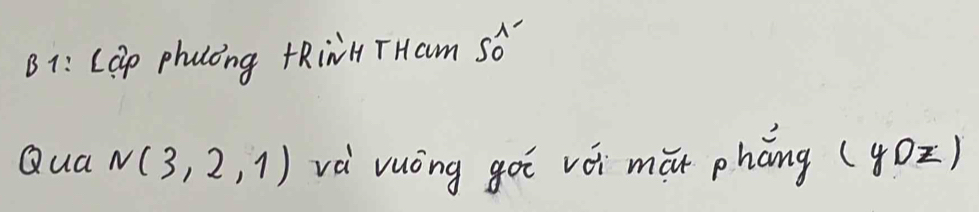 B1: Lập phương tRÌNH THam Số
Qua N(3, 2, 1) và vuông góc với mặt phẳng (yOz)